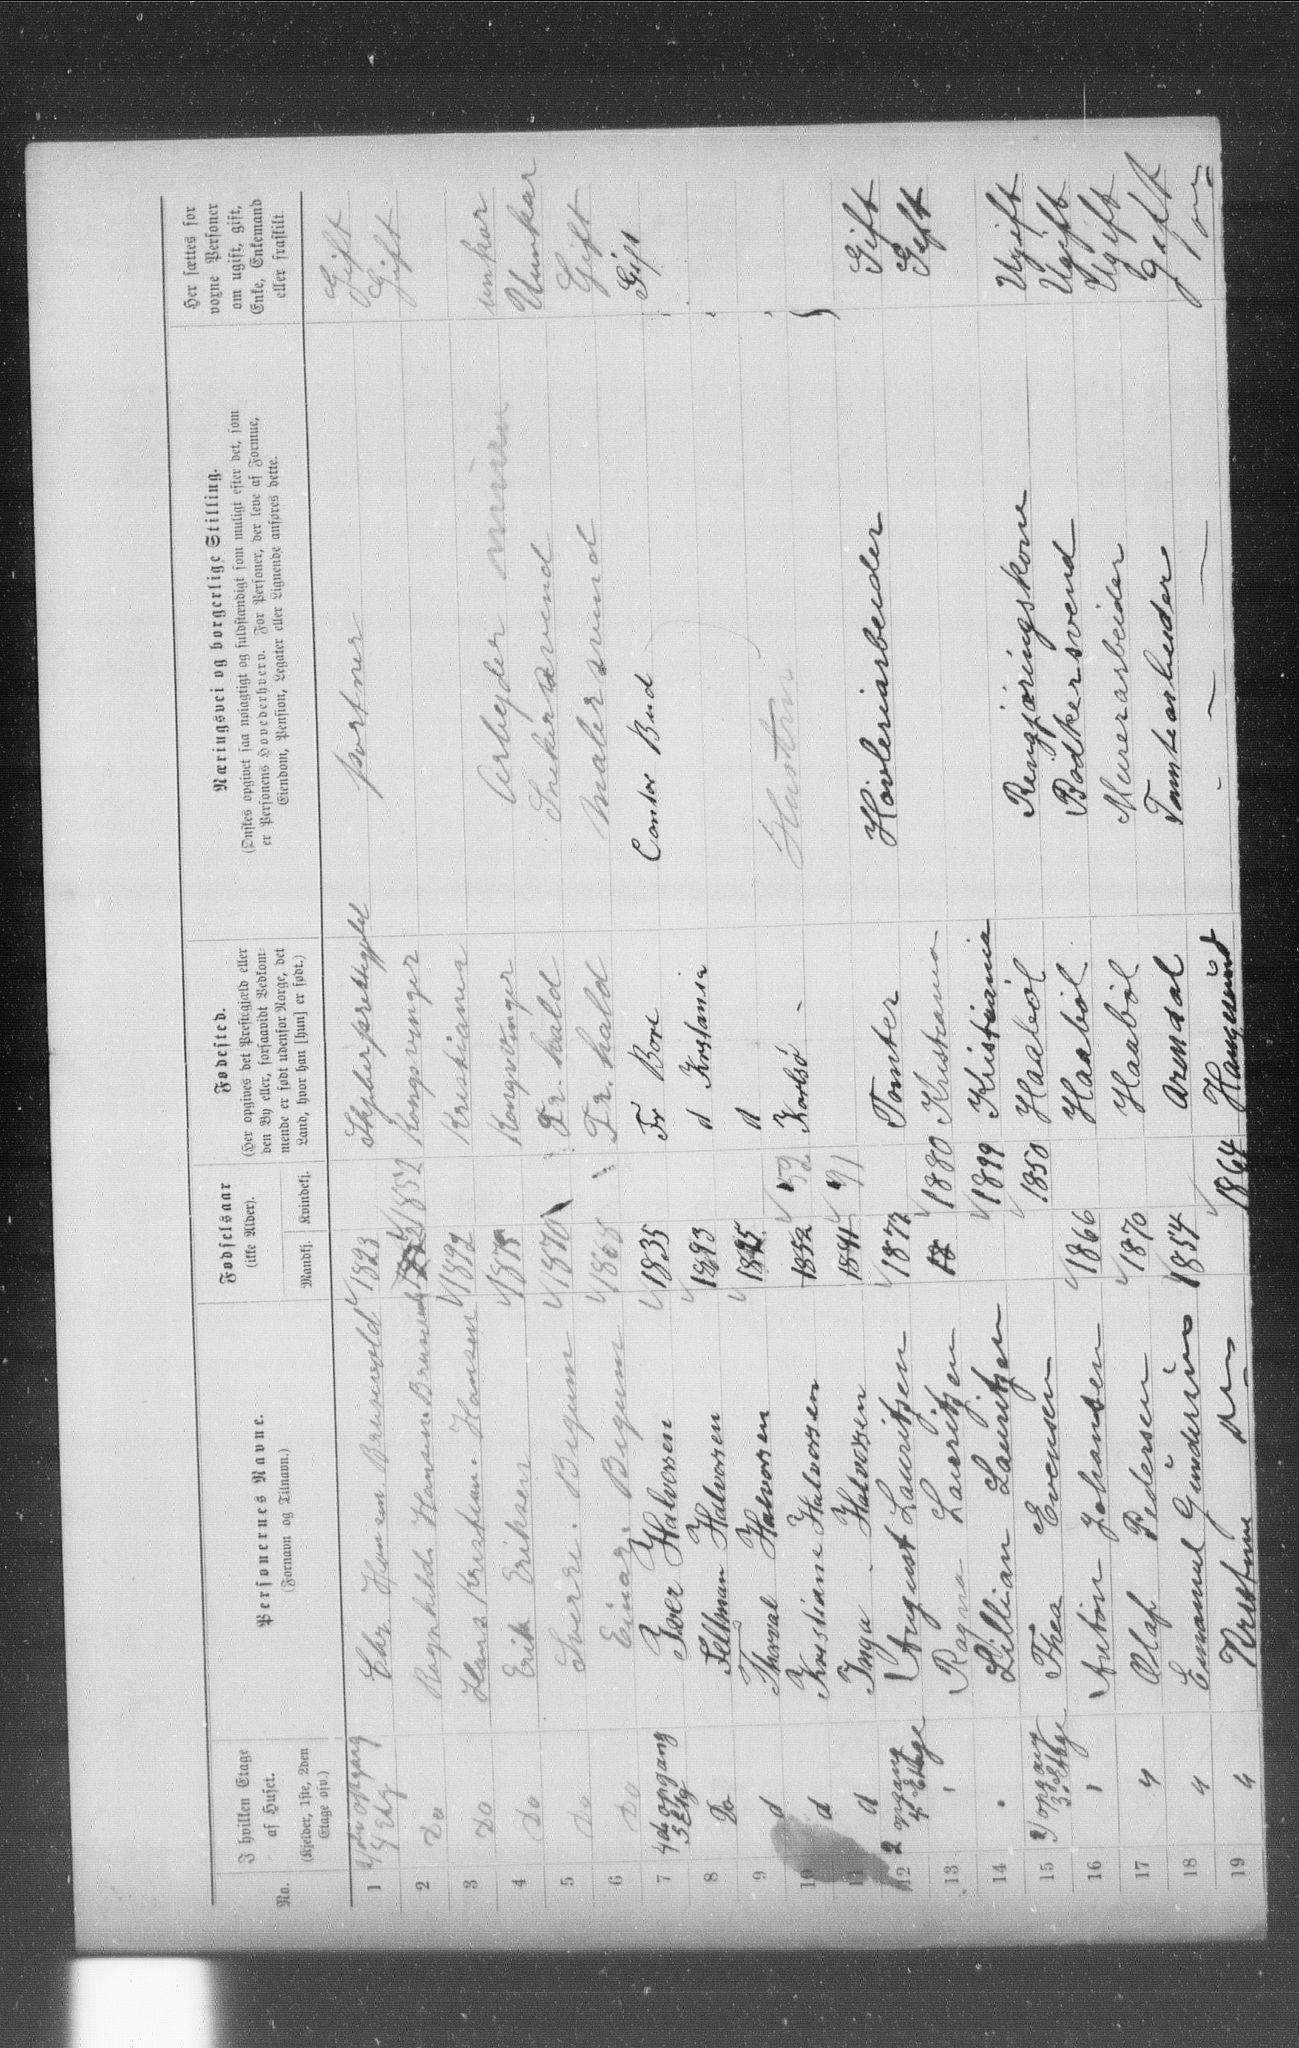 No.
I hvilken Etage
af Huset.
(Kjelder, 1ste, 2den
Etage osv.)
Personernes Navne.
(Fornavn og Tilnavn.)
Fødselsaar
(ikke Alder).
Mandkj. Kvindekj.
Fødested.
(Her opgives det Prestegjeld eller
den By eller, forsaavidt Bedkom-
mende er født udenfor Norge, det
Land, hvor han [hun] er født.)
Næringsvei og borgerlige Stilling.
(Ønskes opgivet saa nøiagtigt og fuldstændigt som muligt efter det, som
er Personens Hovederhverv. For Personer, der leve af Formue,
Eiendom, Pension, Legater eller Lignende anføres dette.
Her sættes for
voxne Personer
om ugift, gift,
Enke, Enkemand
eller fraskilt
1 opgang 4 Etg Chr. Hansen Brunvold 1823 portner Gift
2 Do Ragnhild Hansen 1852 Kongsvinger Gift
3 Do Hans Kristian Hansen 1892 Kristiania
4 Do Erik Eriksen 1875 Kongsvinger Arbeyder unkar
5 Do Sverre Begum 1870 Fr. hald Snekersvend Unnkar
6 Do Einar Begum 1868 Fr. hald malersvend Gift
7 opgang 3 Etg Iver Halvorsen 1835 Fr Bore Contor Bud Gift
8 Do Feltman Halvorsen 1893 d Kristania
9 d Thorval Halvorsen 1895 d
10 d Kristiane Halvorsen 1852 52 Korlsø Hustru
11 d Inga Halvorsen 1891 91 -
12 2 opgang 4 Etage August Lauritzen 1877 Tomter Høvleriarbeider Gift
13 Ragna Lauritzen 18 1880 Kristiania Gift
14 Lillian Lauritzen 1899 Khristiania
15 opgang 3 Etage Thea Evensen 1850 Haabøl Rengjøringskone Ugift
16 Anton Johansen 1866 Haabøl Bødkersvend Ugift
17 " Olaf Pedersen 1870 Haabøl Murerarbeider Ugift
18 " Emanuel Gundersen 1854 Arendal Tomtearbeider Gift
19 " Kristine 1864 Haugesund - - -